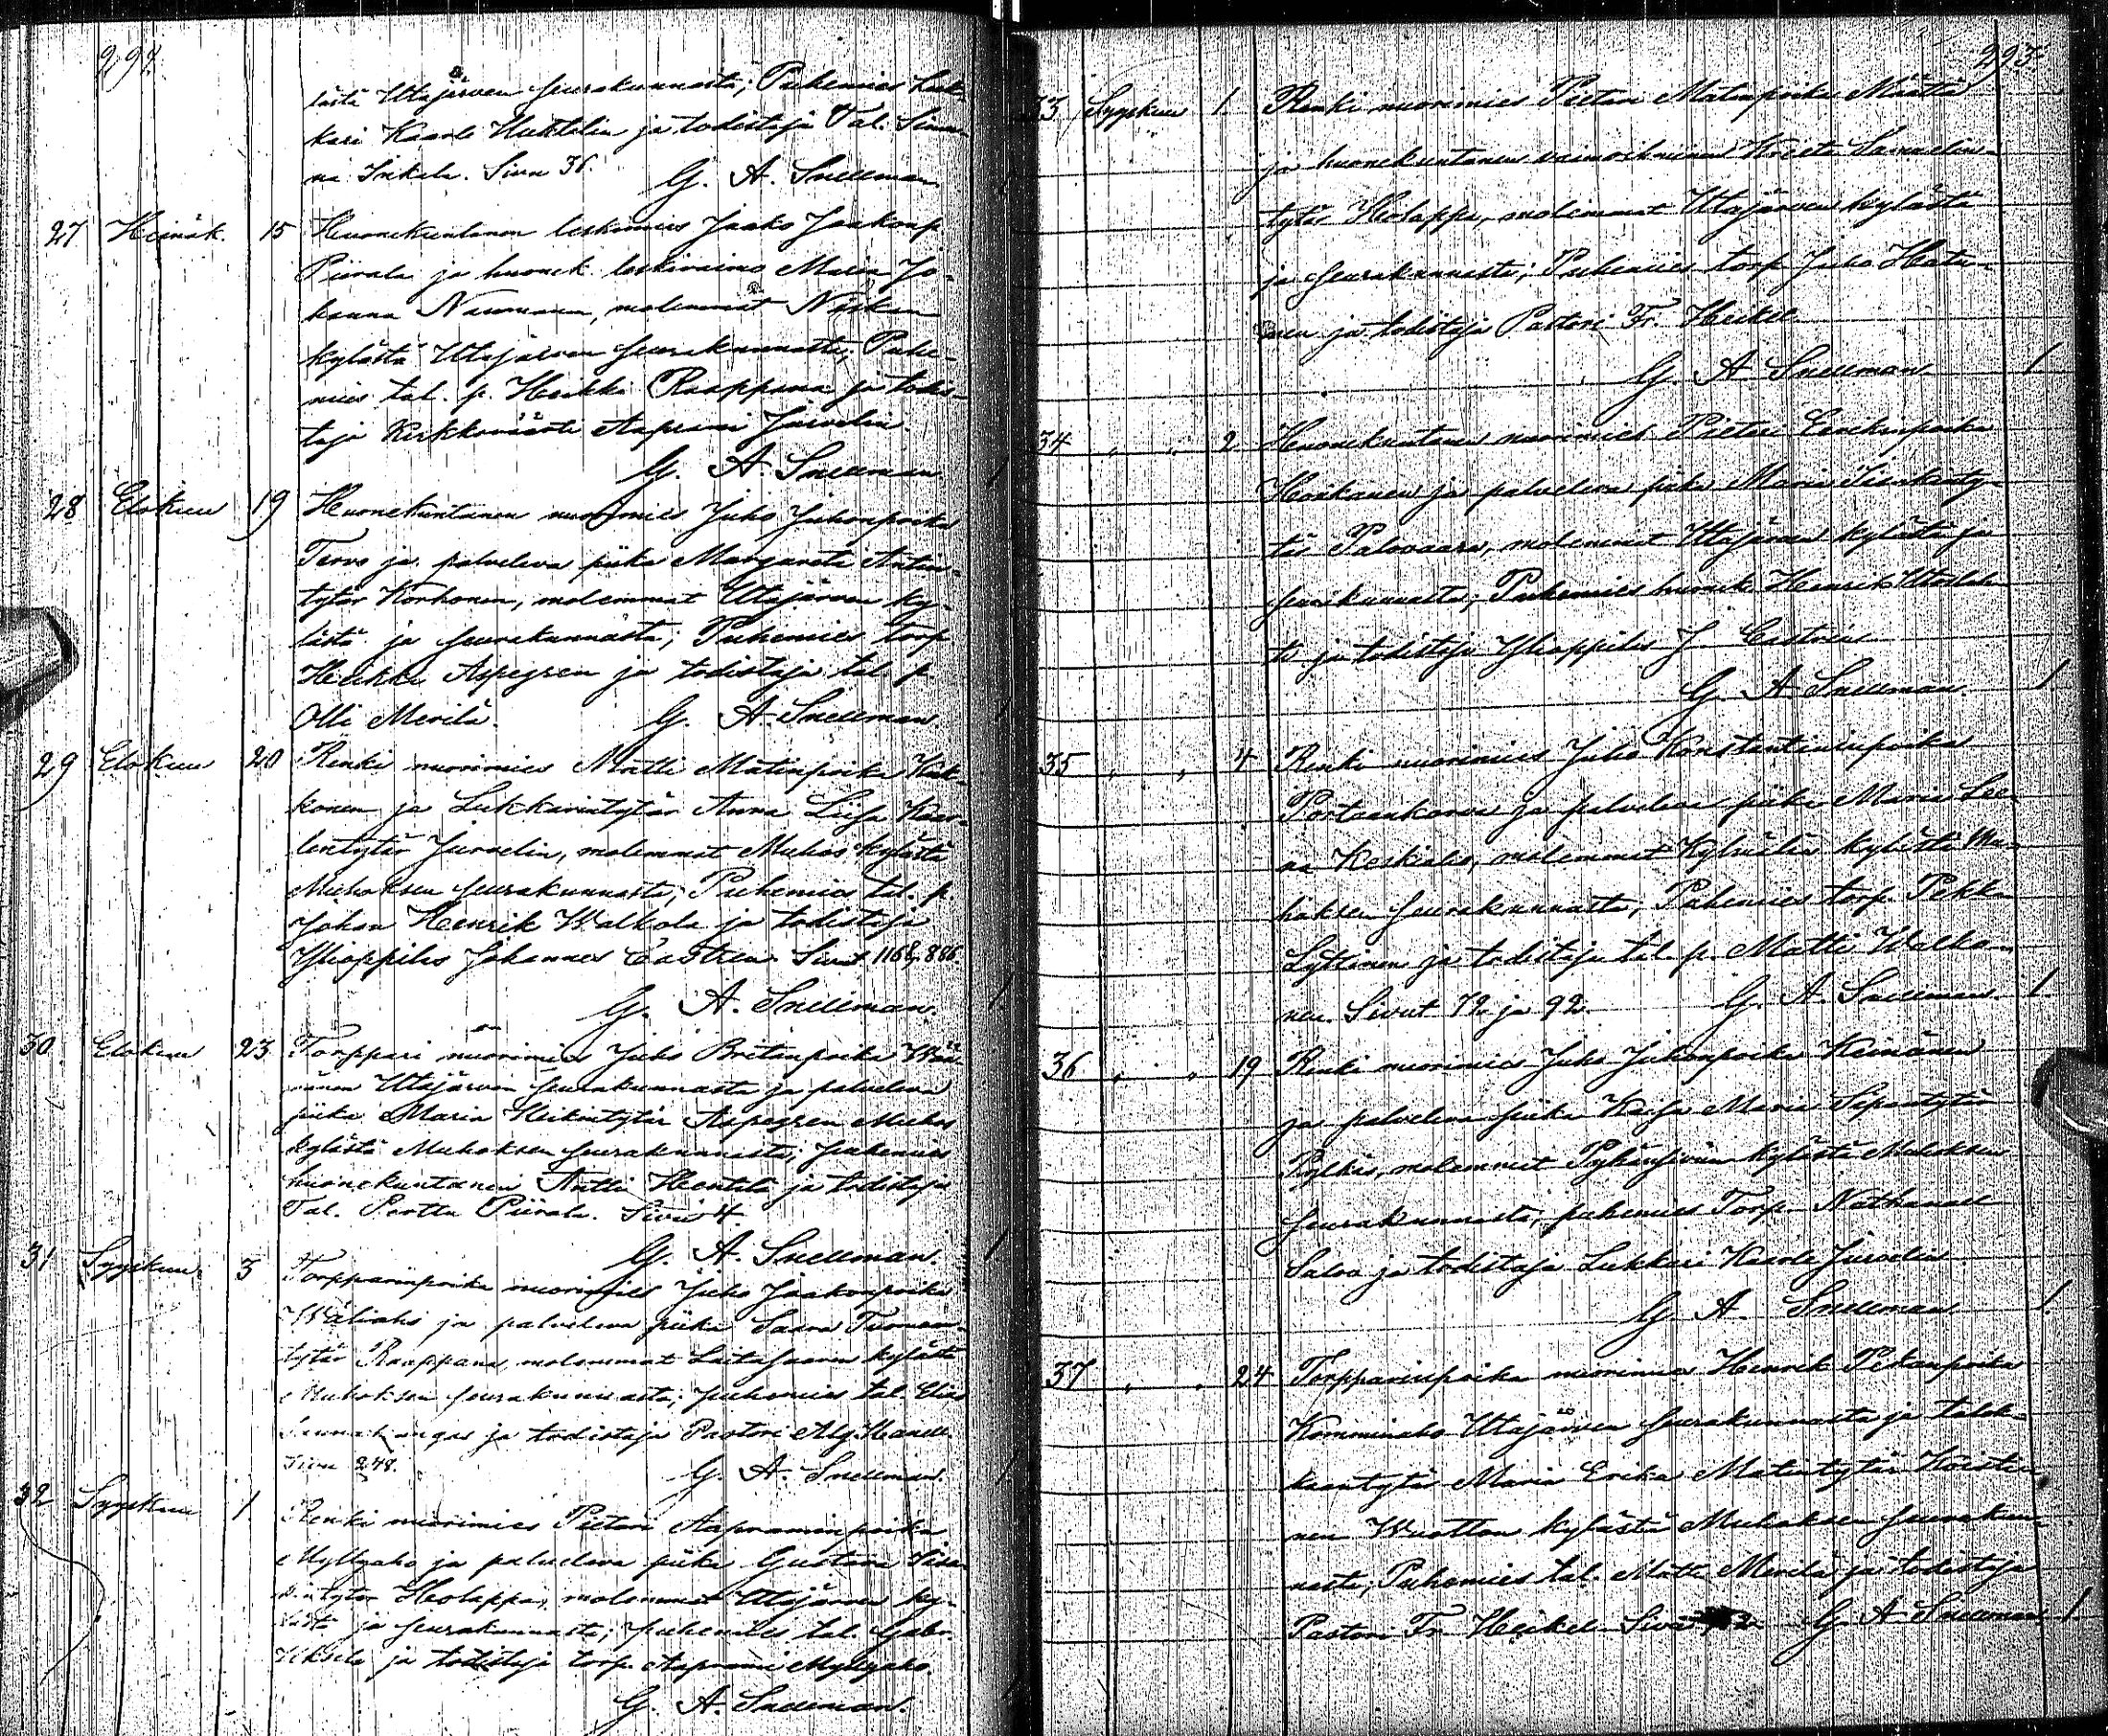 292.
lästä Utajärven seurakunnasta; Puhemies Luk-
kari Kaarle Huktelin ja todistaja Tal. Simu-
na Inkala. Sivu 36. G. A. Snellman
27 Heinäk. 15 Huonekuntanen leskimies Jaako Jaakonp.
Piirala ja huonek. leskivaimo Maria Jo-
hanna Naumann, molemmat Niskan
kylästä Utajärven seurakunnasta; Puhe-
mies tal. p. Heikki Raappana ja todis-
taja Kirkkoväärti Aaprami Jurvelin
G. A. Snellman. 1
28 Elokuu 19 Huonekuntanen nuorimies Juho Juhonpoika
Tervo ja palveleva piika Margareta Antin-
tytär Korhonen, molemmat Utajärven ky-
lästä ja seurakunnasta; Puhemies torp.
Heikki Aspegren ja todistaja tal. p.
Olli Merilä. G. A. Snellman
29 Elokuu 20 Renki nuorimies Matti Matinpoika Kuk-
konen ja Lukkarintytär Anna Liisa Kaar-
lentytär Jurvelin, molemmat Muhos kylästä
Muhoksen seurakunnasta; Puhemies tal. p.
Johan Henrik Walkola ja todistaja
Ylioppilas Johannes Castren Sivut 1168, 886.
G. A. Snellman. 1
30 Elokuu 23 Torppari nuorimies Juho Britanpoika Wää-
nänen Utajärven seurakunnasta ja palveleva
piika Maria Heikintytär Aspegren Muhos
kylästä Muhoksen seurakunnasta; puhemies
huonekuntanen Antti Hentilä ja todistaja
Tal. Pertta Piirala. Sivu 4.
G. A. Snellman. 1
31 Syyskuu 3 Torpparinpoika nuorimies Juho Jaakonpoika
Wäliaho ja palveleva piika Saara Tuoman-
tytär Raappana, molemmat Laitasaaren kylästä
Muhoksen seurakunnasta; puhemies tal. Elias
ja todistaja Pastori Alg. Hanell.
Sivu 248. G. A. Snellman. 1
32 Syyskuu 1 Renki nuorimies Pietari Aapraminpoika
Myllyaho ja palveleva piika Gustava
Holappa, molemmat Utajärven ky-
lästä ja seurakunnasta; puhemies tal. Gabr.
ja todistaja torp. Aaprami Myllyaho.
G. A. Snellman.
293.
33 Syyskuu 1. Renki nuorimies Pietari Matinpoika Määttä
ja huonekuntanen vaimoihminen Kreeta Samuelin-
tytär Holappa, molemmat Utajärven kylästä
ja seurakunnasta; Puhemies torp. Juho Hatu-
nen ja todistaja Pastori Fr. Heikel.
G. A. Snellman 1
34 „ „ 2 Huonekuntanen nuorimies Pietari Eerikinpoika
Horkanen ja palveleva piika Maria
tär Palovaara, molemmat Utajärven kylästä ja
seurakunnasta; Puhemies huonek. Henrik
ja todistaja Ylioppilas J. Castrén
G. A. Snellman. 1
35 „ „ 4 Renki nuorimies Juho Konstantininpoika
Portaankorva ja palveleva piika Maria Lee-
na Keskiaho, molemmat Kylmälän kylästä Mu-
hoksen seurakunnasta; Puhemies torp. Pekka
Lyttinen ja todistaja tal. p. Matti Walko-
nen. Sivut 72 ja 92. G. A. Snellman. 1
36 „ „ 19 Renki nuorimies Juho Juhonpoika Keinänen
ja palveleva piika Kaisa Maria Sepäntytär
Pylkäs, molemmat Pyhänsivun kylästä Muhoksen
seurakunnasta; puhemies Torp. Nathanael
Saloa ja todistaja Lukkari Kaarle Jurvelin
G. A. Snellman 1
37 „ „ 24 Torpparinpoika nuorimies Henrik Pekanpoika
Komminaho Utajärven seurakunnasta ja talok-
kaantytär Maria Erika Matintytär Koistu-
nen Wuotton kylästä Muhoksen seurakun-
nasta; Puhemies tal. Matti Merilä ja todistaja
Pastori Fr. Heikel. G. A. Snellman 1.